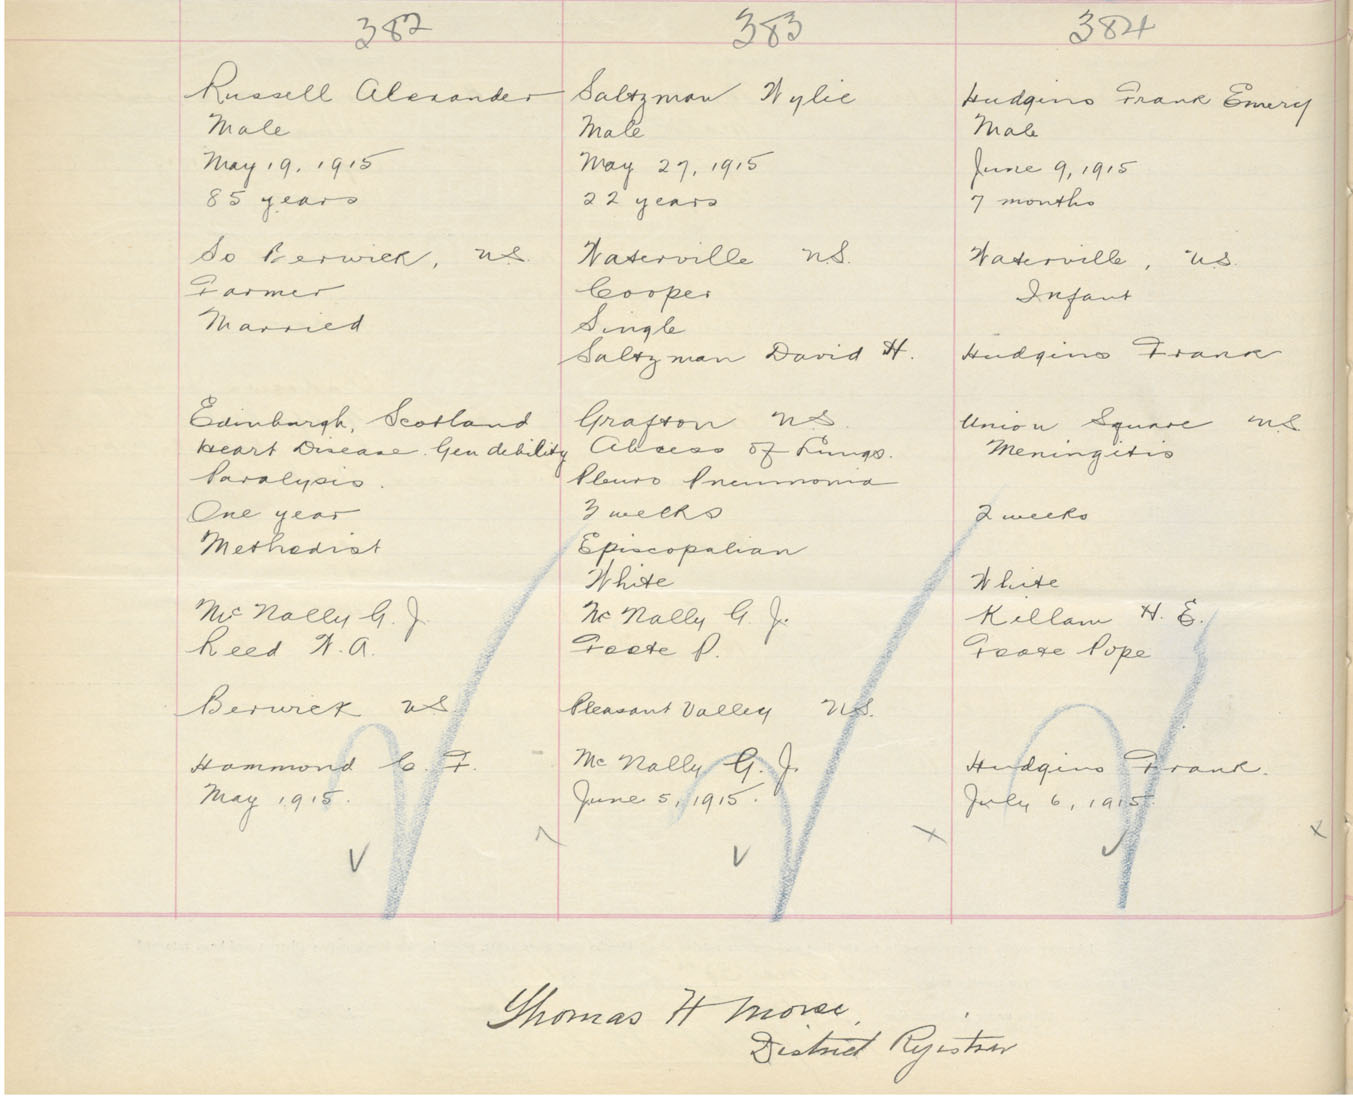 382
Russell Alexander
Male
May 19, 1915
85 years
So Berwick, NS.
Farmer
Married
Edinburgh, Scotland
Heart Disease. Gen debility
Paralysis.
One year
Methodist
McNally G. J.
Reed W. A.
Berwick NS
Hammond C. F.
May 1915.
383
Saltzman Wylie
Male
May 27, 1915
22 years
Waterville NS.
Cooper
Single
Saltzman David H.
Grafton NS.
Abcess of Lungs.
Pleuro Pneumonia
3 weeks
Episcopalian
White
McNally G. J.
Foote P.
Pleasant Valley NS.
McNally G. J.
June 5, 1915.
384
Hudgins Frank Emery
Male
June 9, 1915
7 months
Waterville, NS.
Infant
Hudgins Frank
Union Square NS
Meningitis
2 weeks
White
Killam H. E.
Foote Pope
Hudgins Frank.
July 6, 1915.
Thomas H Morse,
District Registrar